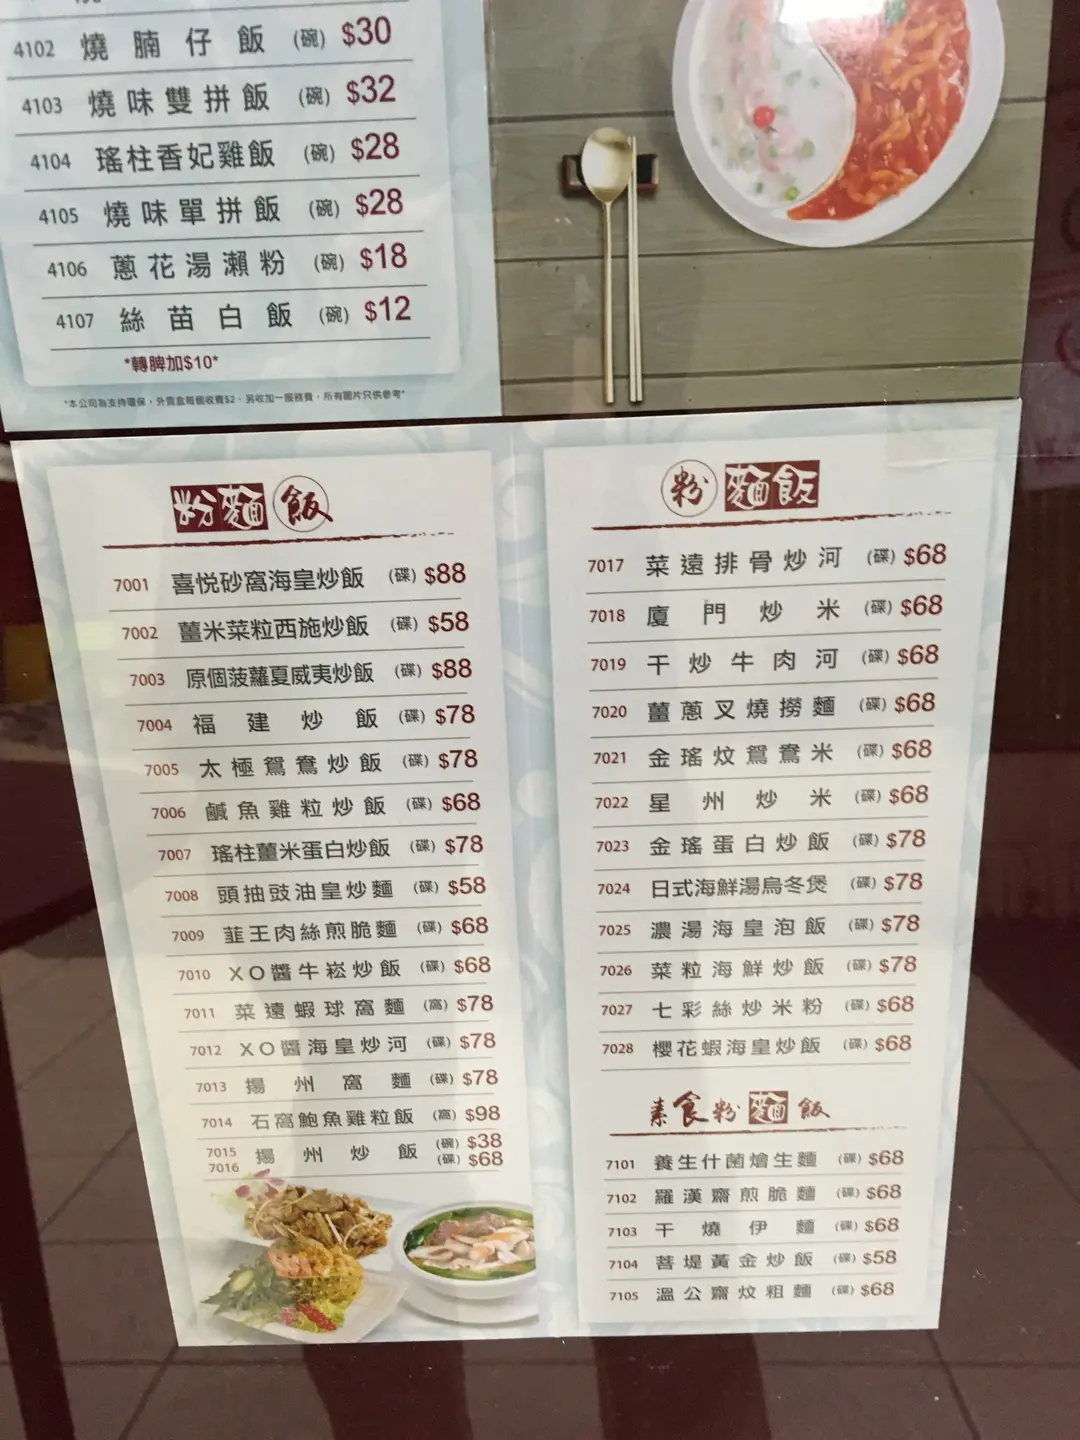 4102 燒腩仔飯 (碗) $30
4103 燒味雙拼飯 (碗) $32
4104 瑤柱香妃雞飯 (碗) $28
4105 燒味單拼飯 (碗) $28
4106 蔥花湯瀨粉 (碗) $18
4107 絲苗白飯 (碗) $12
*轉髀加$10*
*本公司為支持環保，外賣盒每個收費$2，另收加一服務費，所有圖片只供參考*
粉麵飯
7001 喜悅砂窩海皇炒飯 (碟) $88
7002 薑米菜粒西施炒飯 (碟) $58
7003 原個菠蘿夏威夷炒飯 (碟) $88
7004 福建炒飯 (碟) $78
7005 太極鴛鴦炒飯 (碟) $78
7006 鹹魚雞粒炒飯 (碟) $68
7007 瑤柱薑米蛋白炒飯 (碟) $78
7008 頭抽豉油皇炒麵 (碟) $58
7009 韮王肉絲煎脆麵 (碟) $68
7010 XO醬牛崧炒飯 (碟) $68
7011 菜遠蝦球窩麵 (窩) $78
7012 XO醬海皇炒河 (碟) $78
7013 揚州窩麵 (碟) $78
7014 石窩鮑魚雞粒飯 (窩) $98
7015 揚州炒飯 (碗) $38
7016 (碟) $68
粉麵飯
7017 菜遠排骨炒河 (碟) $68
7018 廈門炒米 (碟) $68
7019 干炒牛肉河 (碟) $68
7020 薑蔥叉燒撈麵 (碟) $68
7021 金瑤炆鴛鴦米 (碟) $68
7022 星州炒米 (碟) $68
7023 金瑤蛋白炒飯 (碟) $78
7024 日式海鮮湯烏冬煲 (碟) $78
7025 濃湯海皇泡飯 (碟) $78
7026 菜粒海鮮炒飯 (碟) $78
7027 七彩絲炒米粉 (碟) $68
7028 櫻花蝦海皇炒飯 (碟) $68
素食粉麵飯
7101 養生什菌燴生麵 (碟) $68
7102 羅漢齋煎脆麵 (碟) $68
7103 干燒伊麵 (碟) $68
7104 菩堤黃金炒飯 (碟) $58
7105 溫公齋炆粗麵 (碟) $68